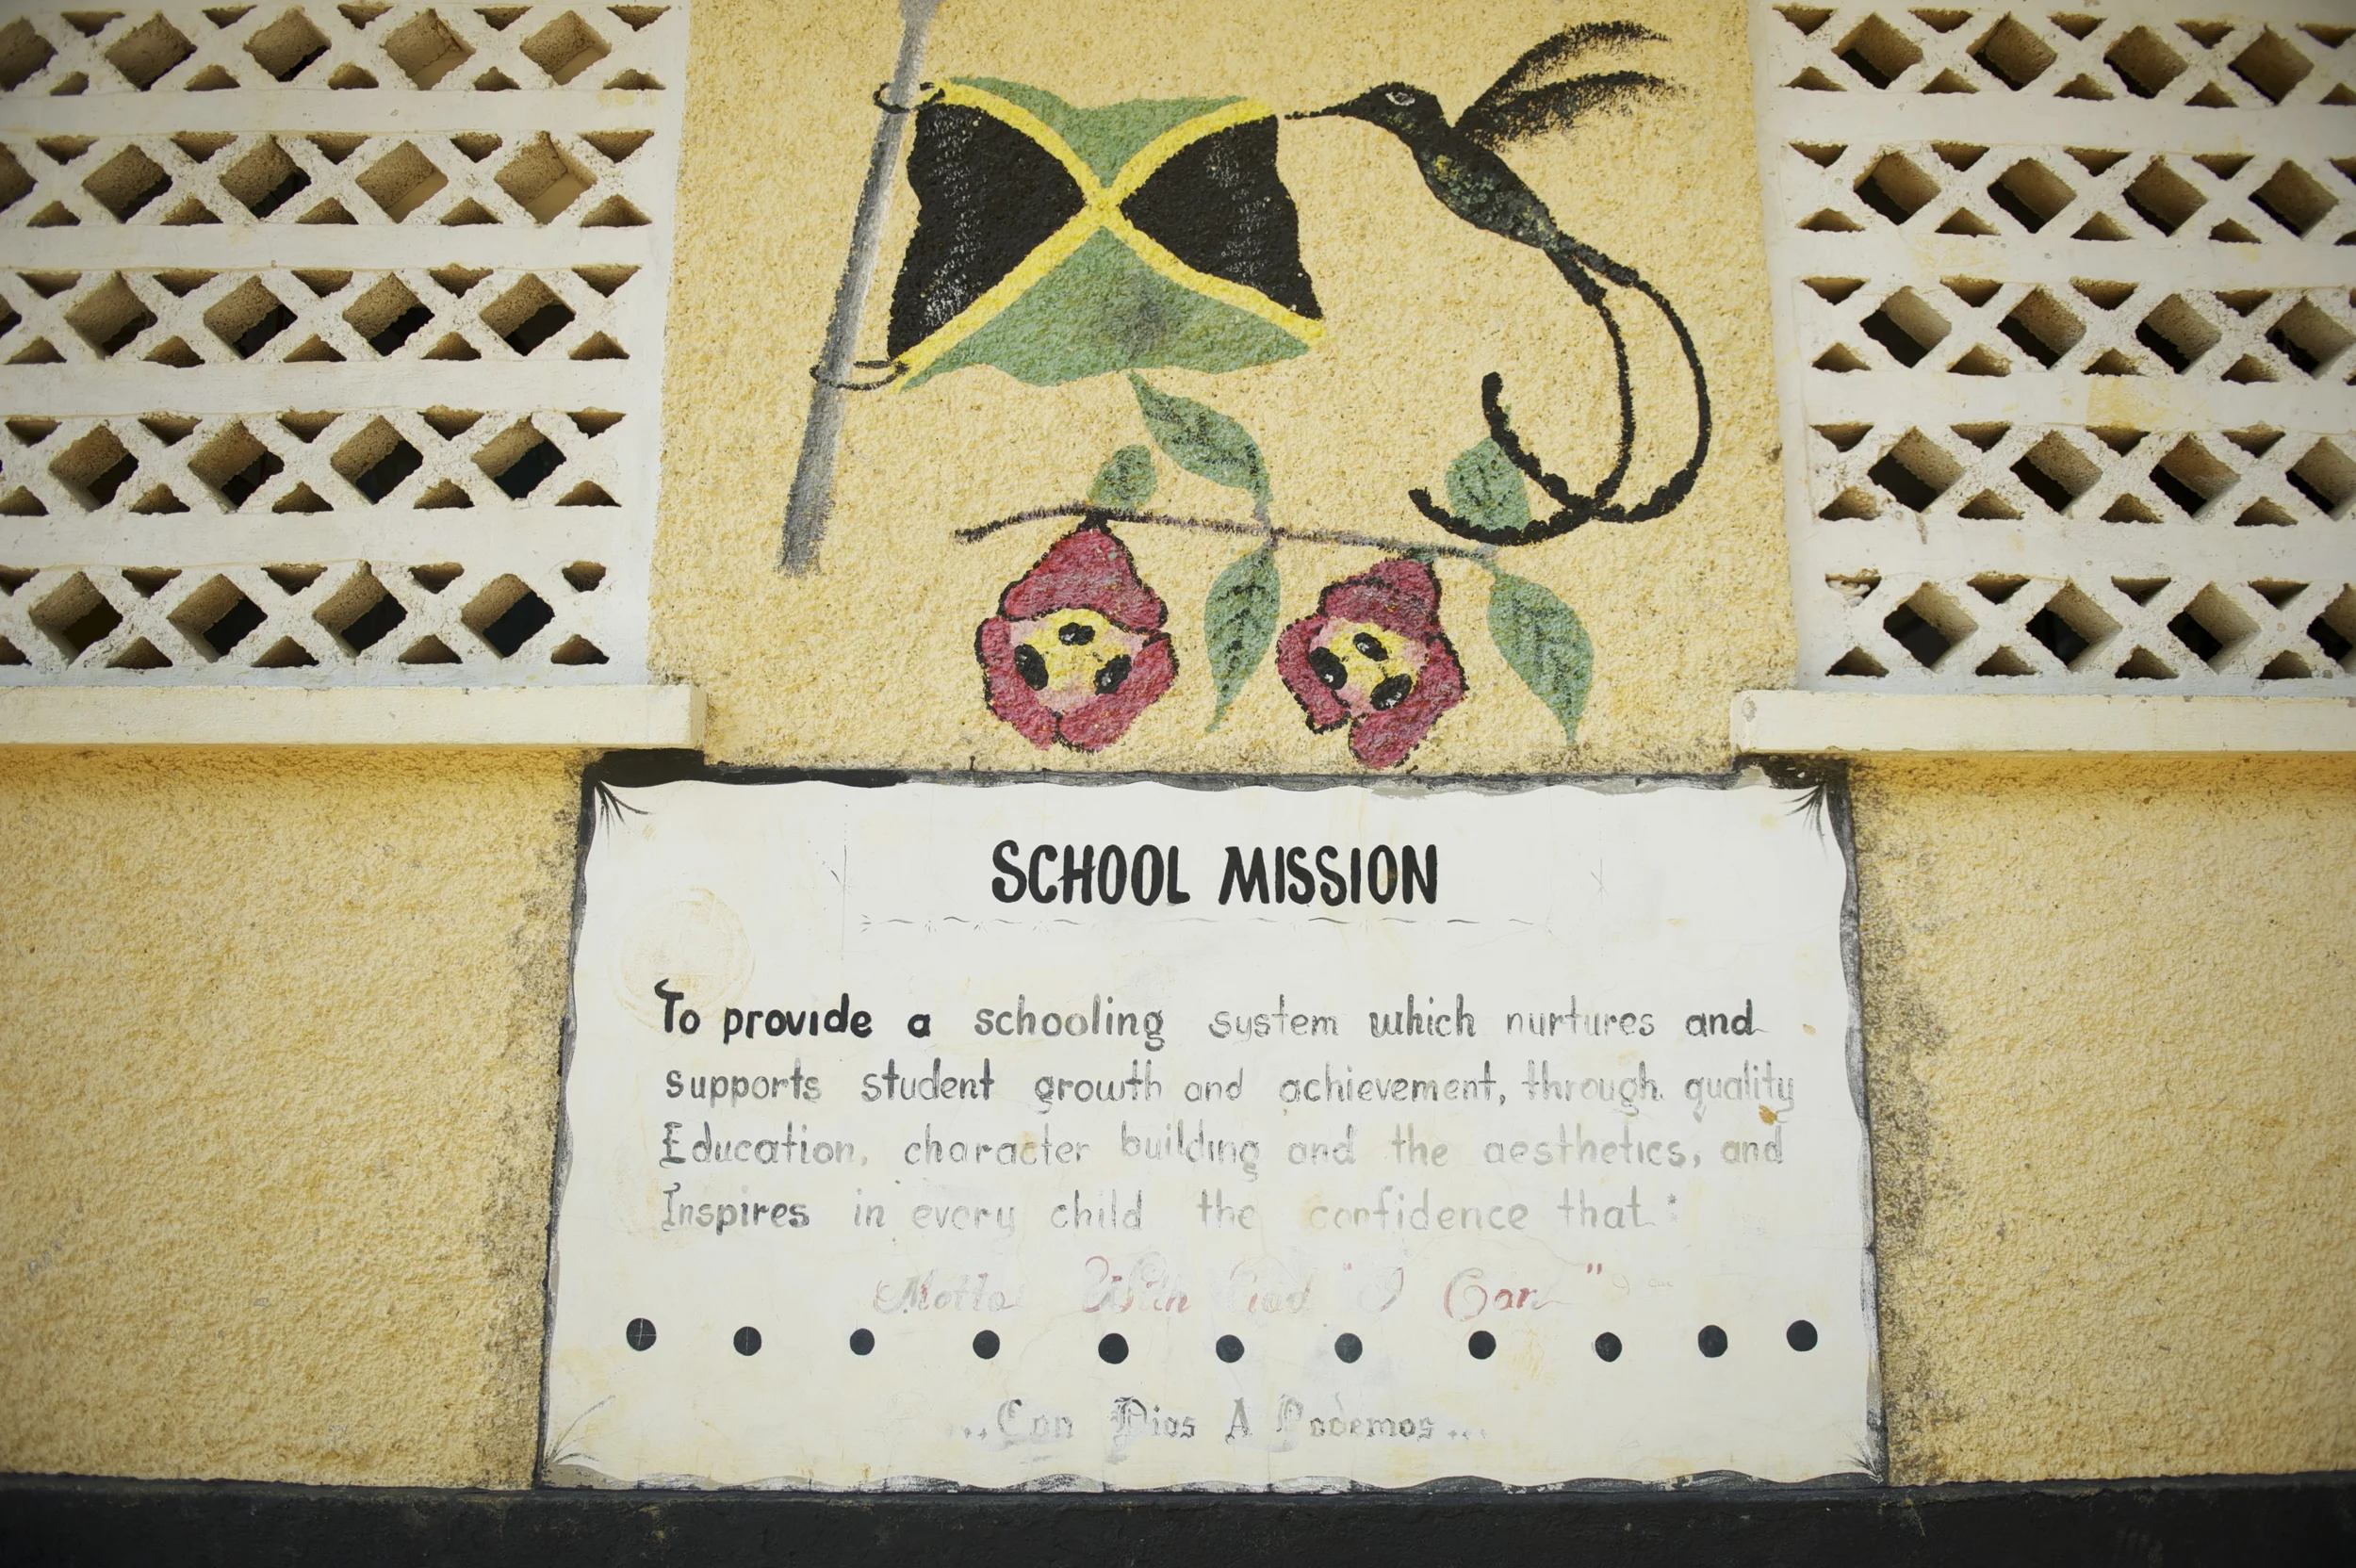 SCHOOL MISSION
To provide a schooling system which nurtures and
supports student growth and achievement, through quality
Education, character building and the aesthetics, and
Inspires in every child the confidence that:
Motto With God "I Can"
...Con Dios A Podemos...